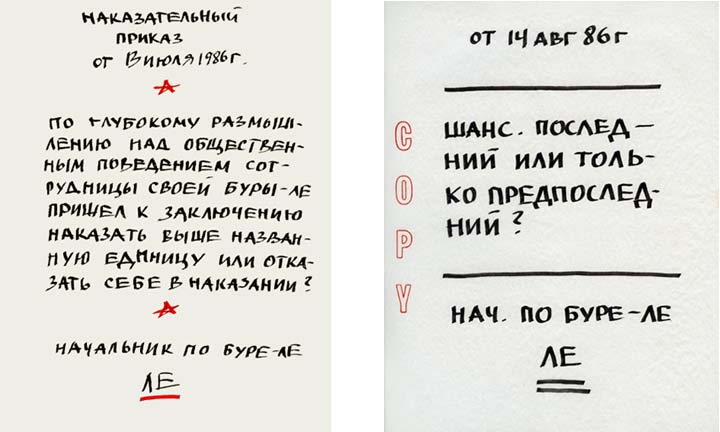 НАКАЗАТЕЛЬНЫЙ
ПРИКАЗ
ОТ 13 ИЮЛЯ 1986 Г.
ПО ГЛУБОКОМУ РАЗМЫШ-
ЛЕНИЮ НАД ОБЩЕСТВЕН-
НЫМ ПОВЕДЕНИЕМ СОТ-
РУДНИЦЫ СВОЕЙ БУРЫ-ЛЕ
ПРИШЕЛ К ЗАКЛЮЧЕНИЮ
НАКАЗАТЬ ВЫШЕ НАЗВАН-
НУЮ ЕДИНИЦУ ИЛИ ОТКА-
ЗАТЬ СЕБЕ В НАКАЗАНИИ?
НАЧАЛЬНИК ПО БУРЕ-ЛЕ
ЛЕ
ОТ 14 АВГ 86 Г
COPY
ШАНС. ПОСЛЕД-
НИЙ ИЛИ ТОЛЬ-
КО ПРЕДПОСЛЕД-
НИЙ?
НАЧ. ПО БУРЕ-ЛЕ
ЛЕ